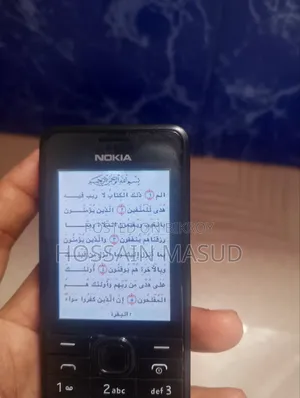 NOKIA
بسم الله الرحمن الرحيم
الم ① ذلك الكتاب لا ريب فيه
هدى للمتقين ② الذين يؤمنون
بالغيب ويقيمون الصلاة ومما
رزقناهم ينفقون ③ والذين يؤمنون
وبالآخرة هم يوقنون ④ أولئك
على هدى من ربهم وأولئك هم
المفلحون ⑤ إن الذين كفروا سواء
البقرة
POSTED BY
HOSSAIN MASUD
1
2abc
def 3